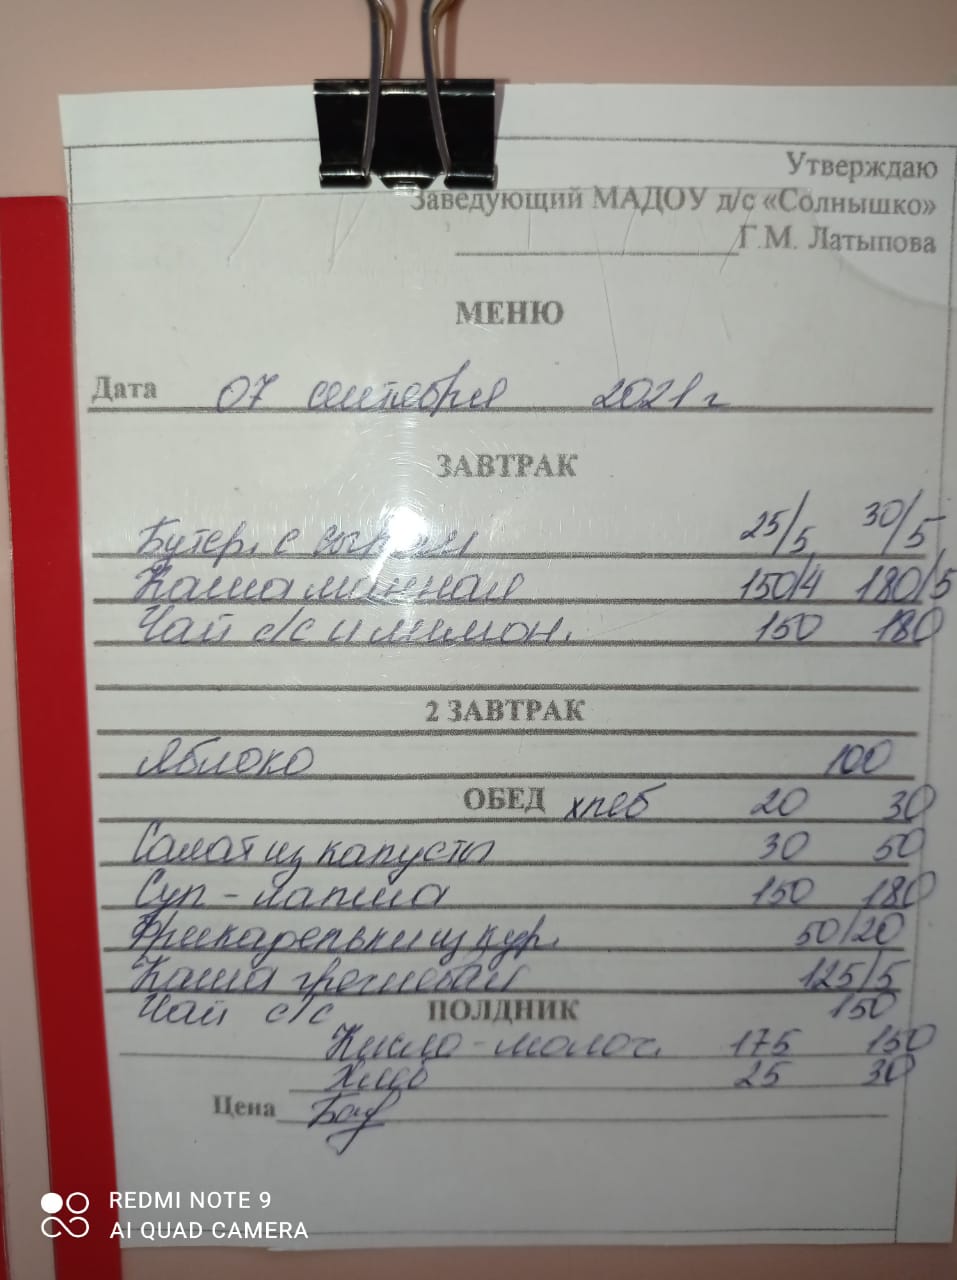 Утверждаю
Заведующий МАДОУ д/с «Солнышко»
Г.М. Латыпова
МЕНЮ
Дата 07 сентября 2021 г
ЗАВТРАК
Бутер. с сыром 25/5 30/5
Каша манная 150/4 180/5
Чай с/с и лимон. 150 180
2 ЗАВТРАК
Яблоко 100
ОБЕД хлеб 20 30
Салат из капусты 30 50
Суп - лапша 150 180
Фрикадельки из кур. 50/20
Каша гречневая 125/5
Чай с/с 150
ПОЛДНИК
Кисло-молоч. 175 150
Хлеб 25 30
Цена
REDMI NOTE 9
AI QUAD CAMERA